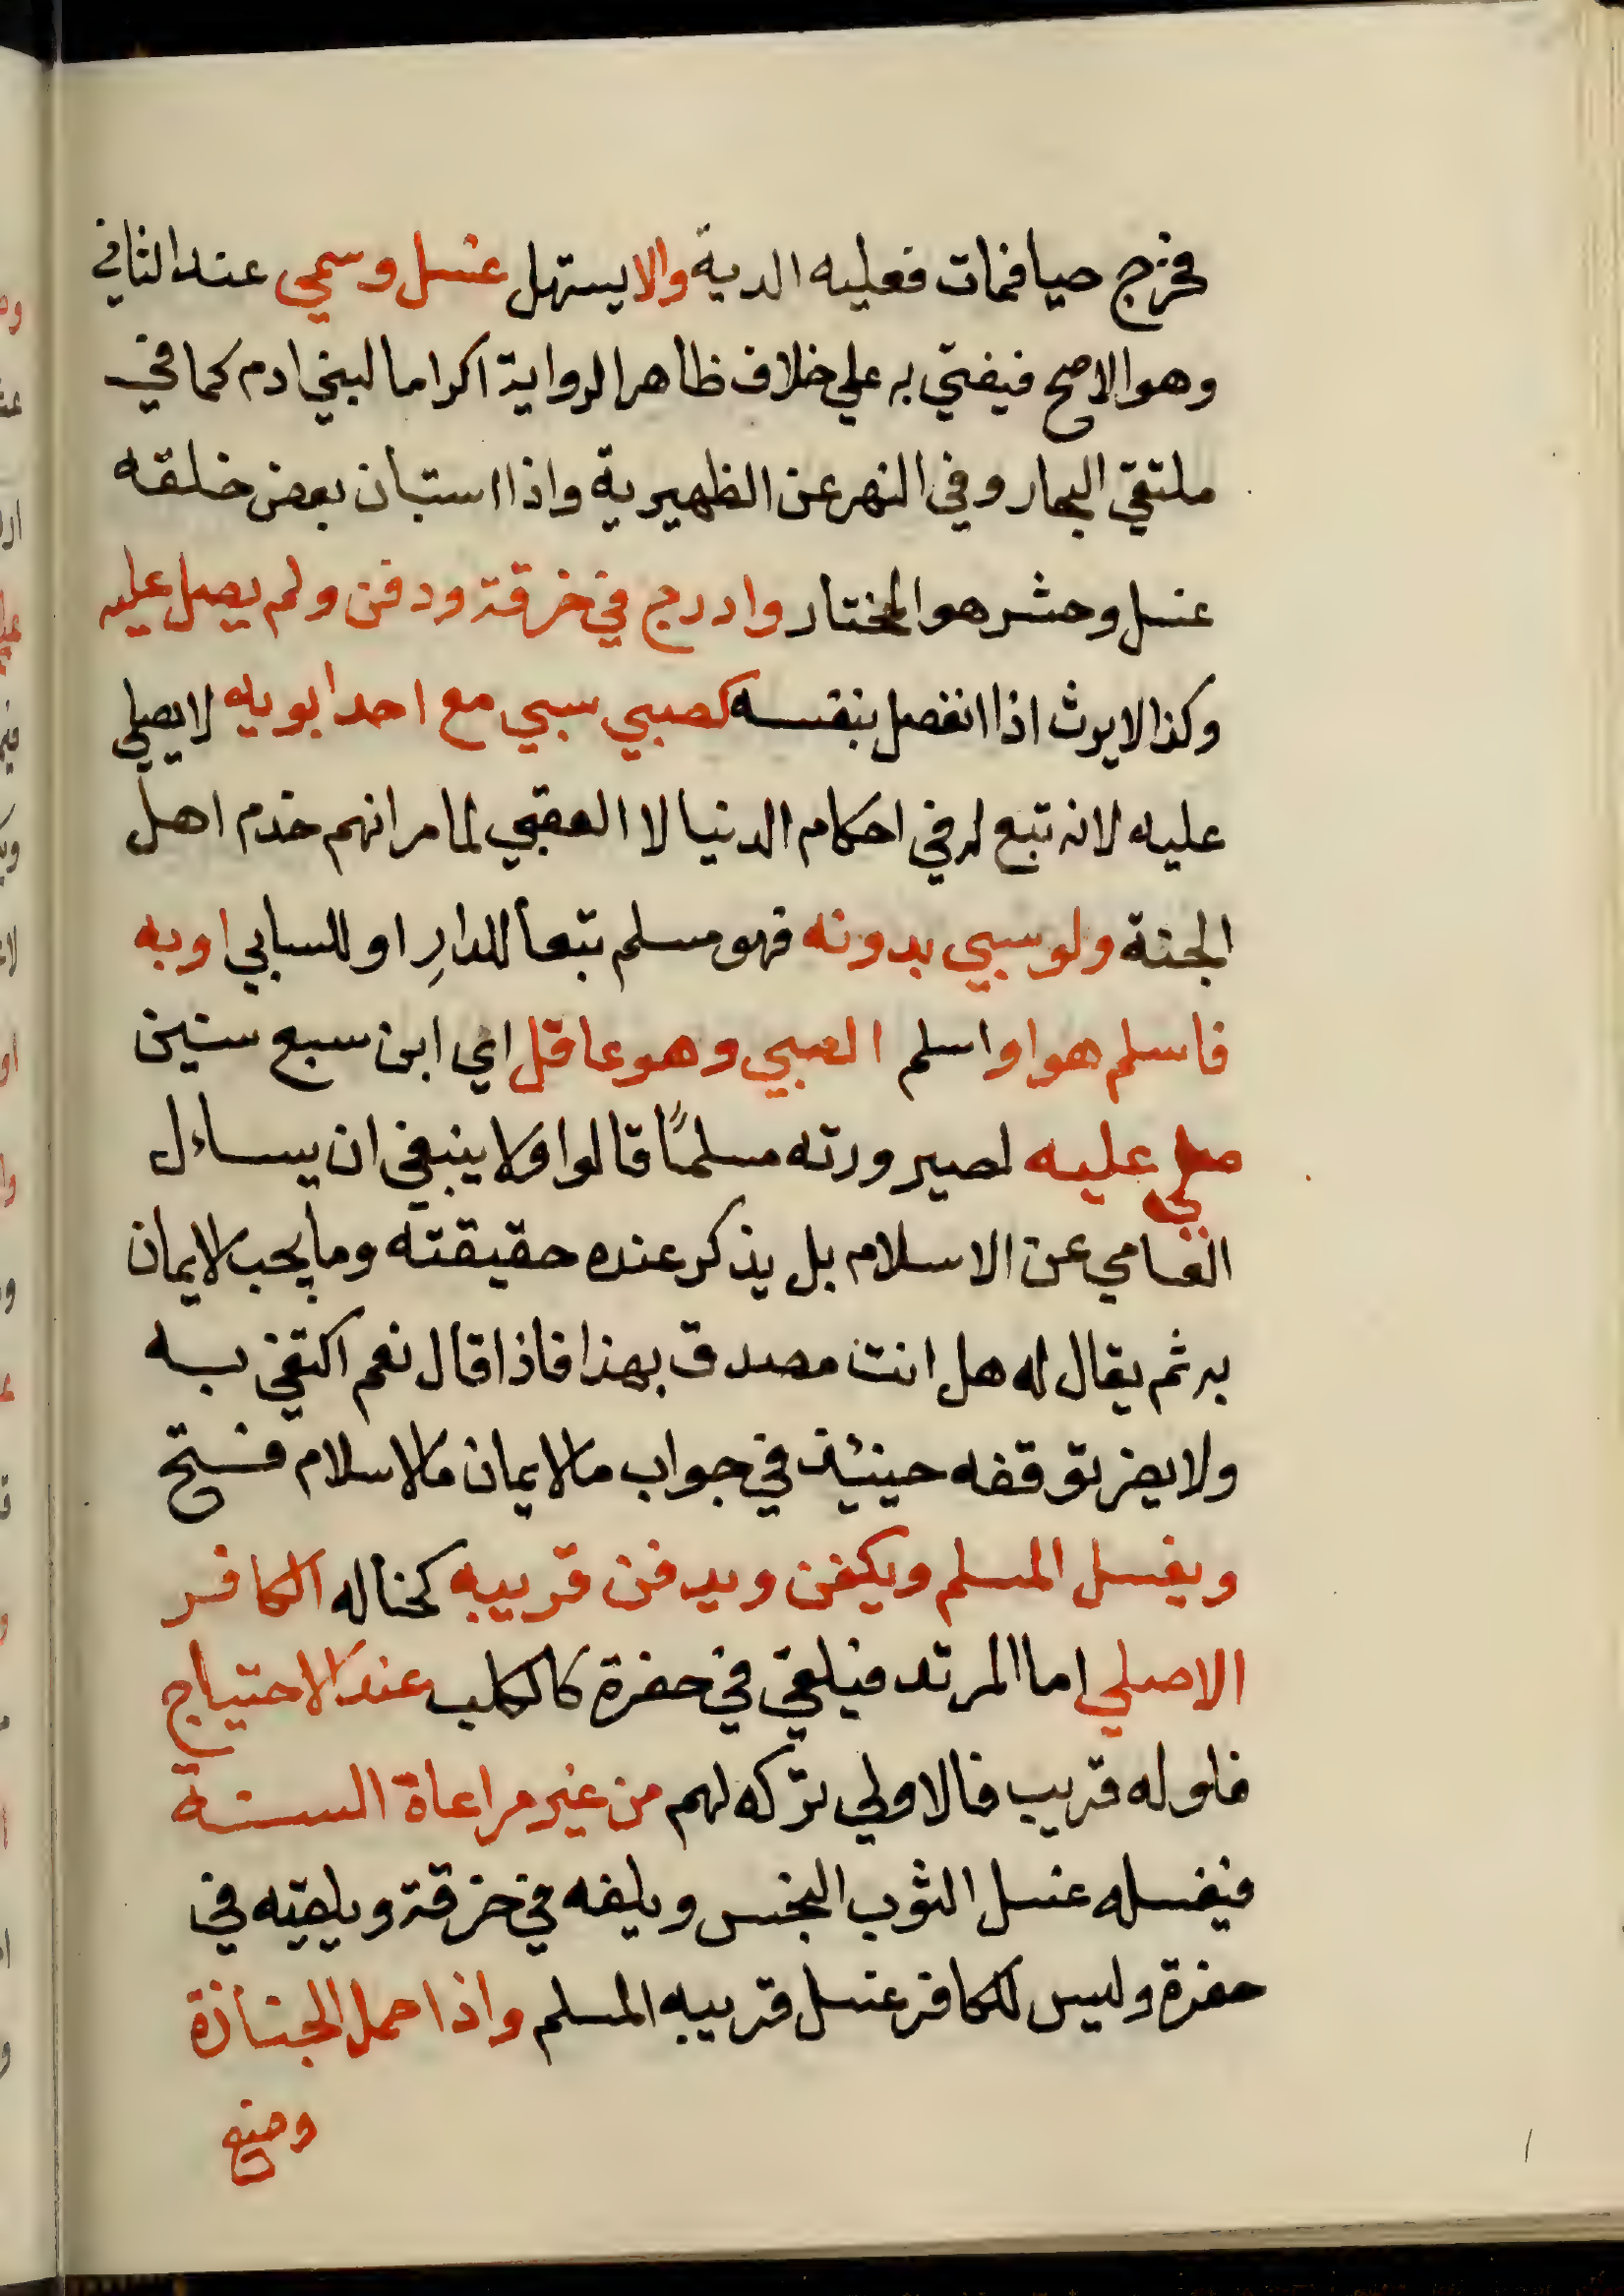 فخرج حيا فمات فعليه الدية والا يستهل غسل وسمي عند الثاني
وهو الاصح فيفتي به علي خلاف ظاهر الرواية اكراما لبني ادم كما في
ملتقي البحار وفي النهر عن الظهيرية واذا استبان بعض خلقه
غسل وحشر هو المختار وادرج في خرقة ودفن ولم يصل عليه
وكذا لا يرث اذا انفصل بنفسه كصبي سبي مع احد ابويه لا يصلي
عليه لانه تبع له في احكام الدنيا لا العقبي لما مر انهم خدم اهل
الجنة ولو سبي بدونه فهو مسلم تبعا للدارِ او للسابي او به
فاسلم هو او اسلم الصبي وهو عاقل اي ابن سبع سنين
صلي عليه لصيرورته مسلمًا قالوا ولا ينبغي ان يساءل
العامي عن الاسلام بل يذكر عنده حقيقته وما يجب الايمان
به ثم يقال له هل انت مصدق بهذا فاذا قال نعم اكتفي به
ولا يضر توقفه حينئذ في جواب ما الايمان ما الاسلام فتح
ويغسل المسلم ويكفن ويدفن قريبه كخاله الكافر
الاصلي اما المرتد فيلقي في حفرة كالكلب عند الاحتياج
فلو له قريب فالاولي تركه لهم من غير مراعاة السنة
فيغسله غسل الثوب النجس ويلفه في خرقة ويلقيه في
حفرة وليس للكافر غسل قريبه المسلم واذا حمل الجنازة
وضع